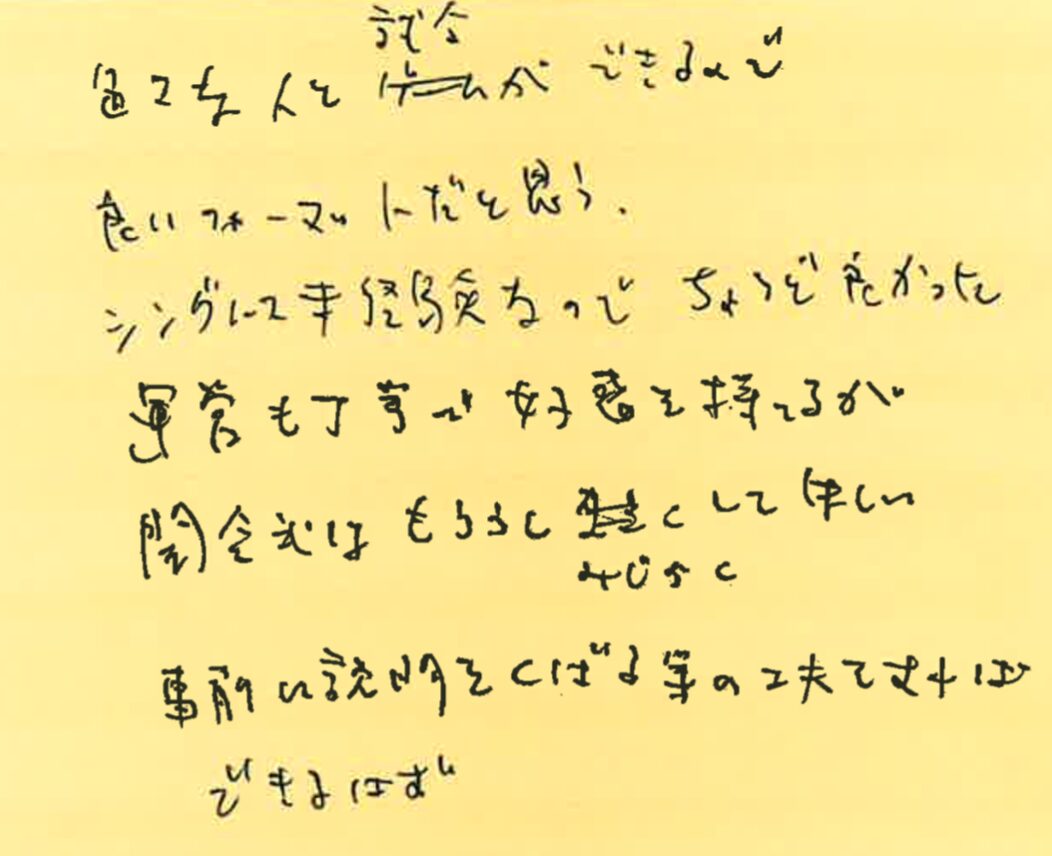 色々な人と試合ができるので
良いフォーマットだと思う.
シングルス未経験なのでちょうど良かった
運営も丁寧で好感を持てるが
開会式はもう少しみじかくしてほしい
事前に説明をくばる等の工夫をすれば
できるはず